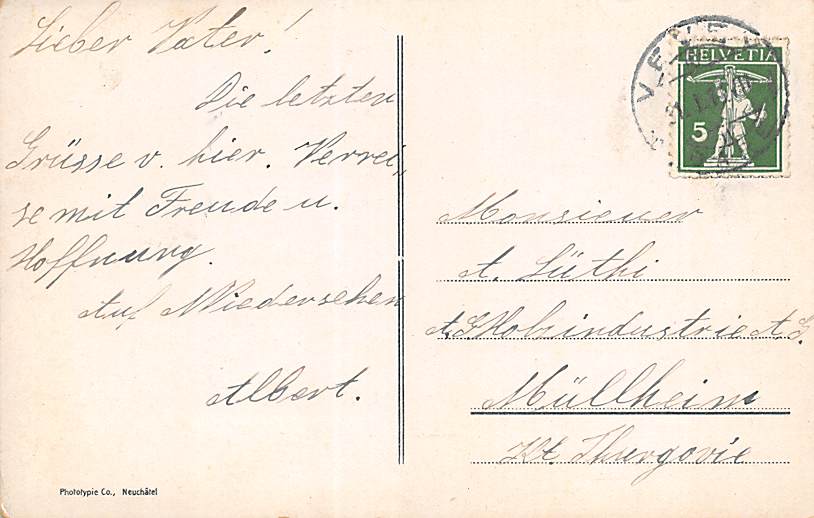 Lieber Vater!
Die letzten
Grüsse v. hier. Verrei„
se mit Freude u.
Hoffnung.
Auf Wiedersehen
Albert.
VEVEY
HELVETIA
5
Monsieuer
A. Lüthi
Holzindustrie A. G.
Müllheim
Kt. Thurgovie
Phototypie Co., Neuchâtel